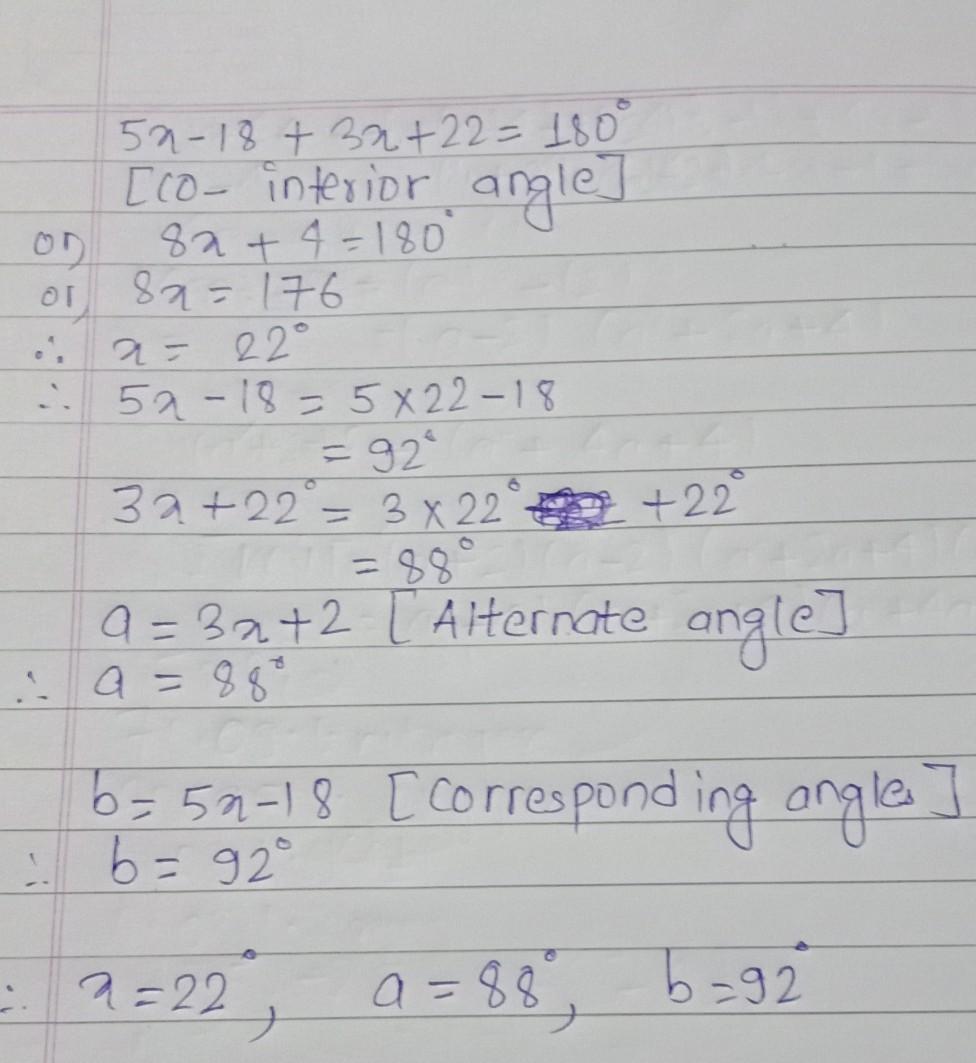 5x-18 + 3x+22 = 180°
[co- interior angle]
or, 8x + 4 = 180°
or, 8x = 176
∴ x = 22°
∴ 5x - 18 = 5×22-18
= 92°
3x+22° = 3×22° +22°
= 88°
a = 3x+2 [Alternate angle]
∴ a = 88°
b = 5x-18 [corresponding angles]
∴ b = 92°
∴ x = 22°, a = 88°, b = 92°